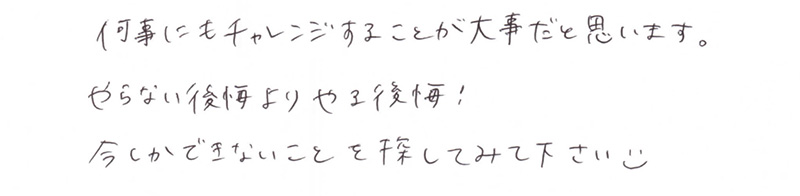 何事にもチャレンジすることが大事だと思います。
やらない後悔よりやる後悔！
今しかできないことを探してみて下さい